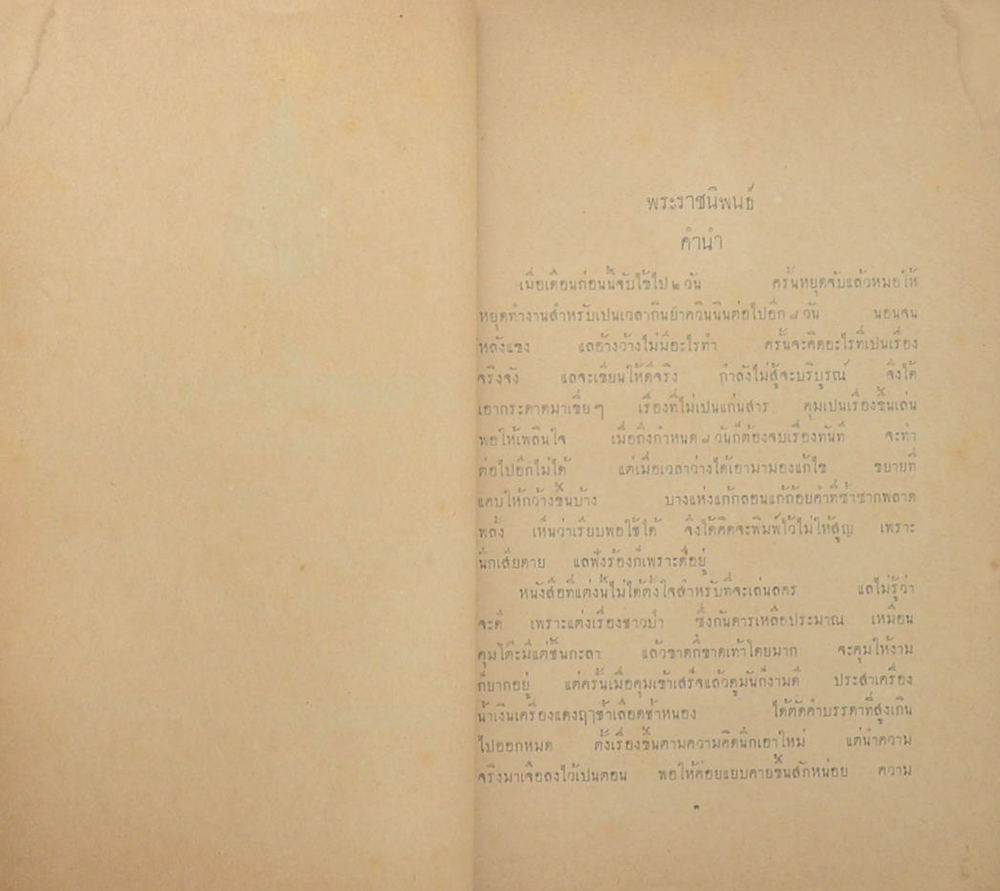 พระราชนิพนธ์
คำนำ
เมื่อเดือนก่อนนี้จับไข้ไป ๒ วัน ครั้นหยุดจับแล้วหมอให้
หยุดทำงานสำหรับเปนเวลากินยาควินนินต่อไปอีก ๘ วัน นอนจน
หลังแขง แลอ้างว้างไม่มีอะไรทำ ครั้นจะคิดอะไรที่เปนเรื่อง
จริงจัง แลจะเขียนให้ดีจริง กำลังไม่สู้จะบริบูรณ์ จึงได้
เอากระดาดมาเขี่ย ๆ เรื่องที่ไม่เปนแก่นสาร คุมเปนเรื่องขึ้นเล่น
พอให้เพลินใจ เมื่อถึงกำหนด ๘ วันก็ต้องจบเรื่องทันที จะทำ
ต่อไปอีกไม่ได้ แต่เมื่อเวลาว่างได้เอามามองแก้ไข ขยายที่
แคบให้กว้างขึ้นบ้าง บางแห่งแก้กลอนแก้ถ้อยคำที่ซ้ำซากพลาด
พลั้ง เห็นว่าเรียบพอใช้ได้ จึงได้คิดจะพิมพ์ไว้ไม่ให้สูญ เพราะ
นึกเสียดาย แลฟังร้องก็เพราะดีอยู่
หนังสือที่แต่งนี้ไม่ได้ตั้งใจสำหรับที่จะเล่นลคร แลไม่รู้ว่า
จะดี เพราะแต่งเรื่องชาวป่า ซึ่งกันดารเหลือประมาณ เหมือน
คุมโต๊ะมีแต่ชิ้นกะลา แล้วขาดก็ขาดเท้าโดยมาก จะคุมให้งาม
ก็ยากอยู่ แต่ครั้นเมื่อคุมเข้าเสร็จแล้วดูมันก็งามดี ประสาเครื่อง
น้ำเงินเครื่องแดงฤๅช้ำเลือดช้ำหนอง ได้ตัดคำบรรดาที่สูงเกิน
ไปออกหมด ตั้งเรื่องขึ้นตามความคิดนึกเอาใหม่ แต่นำความ
จริงมาเจือลงไว้เปนตอน พอให้ค่อยแยบคายขึ้นสักหน่อย ความ
๑